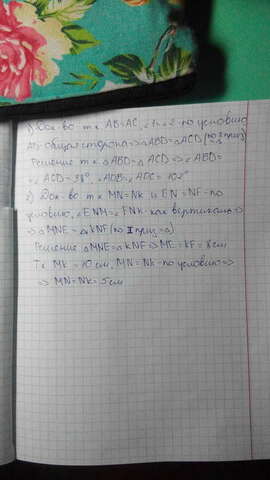 1) Док-во: т.к AB=AC, ∠1=∠2 - по условию
AD общая сторона => ΔABD=ΔACD (по I приз.)
Решение т.к ΔABD=ΔACD => ∠ABD=
=∠ACD=38°, ∠ADB=∠ADC=102°
2) Док-во: т.к MN=NK и EN=NF-по
условию, ∠ENM=∠FNK как вертикальн
=> ΔMNE=ΔKNF (по I приз=Δ)
Решение ΔMNE=ΔKNF => ME=KF=8см
Тк MK=10см, MN=NK-по условию =>
=> MN=NK=5см